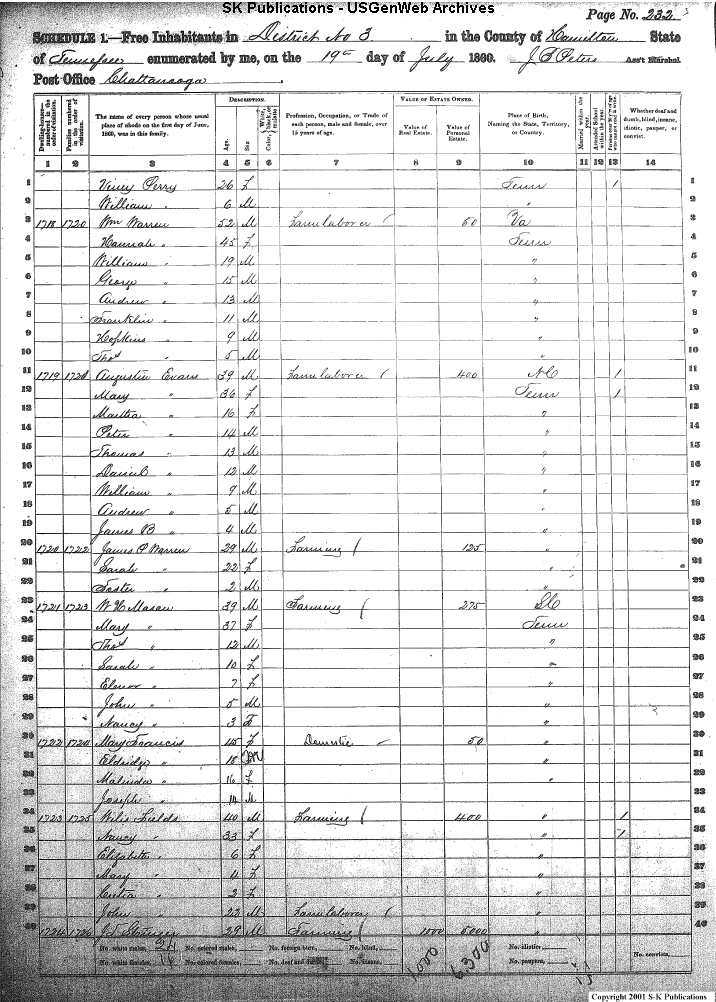 SK Publications - USGenWeb Archives
Page No. 232
SCHEDULE 1.—Free Inhabitants in District No 3 in the County of Hamilton State
of Tennessee enumerated by me, on the 19th day of July 1860. Ass't Marshal
Post Office Chattanooga
Dwelling-houses—numbered in the order of visitation.
Families numbered in the order of visitation.
The name of every person whose usual place of abode on the first day of June, 1860, was in this family.
DESCRIPTION.
Age.
Sex
Color, White, black, or mulatto
Profession, Occupation, or Trade of each person, male and female, over 15 years of age.
VALUE OF ESTATE OWNED.
Value of Real Estate.
Value of Personal Estate.
Place of Birth, Naming the State, Territory, or Country.
Married within the year.
Attended School within the year.
Whether deaf and dumb, blind, insane, idiotic, pauper, or convict.
1 2 3 4 5 6 7 8 9 10 11 12 13 14
1 Viney Perry 26 f Tenn / 1
2 William " 6 M " 2
3 1718 1720 Wm Warren 52 M Farm laborer 50 Va 3
4 Hannah " 45 f Tenn 4
5 William " 19 M " 5
6 George " 15 M " 6
7 Andrew " 13 M " 7
8 Franklin " 11 M " 8
9 Hopkins " 9 M " 9
10 Thos " 5 M " 10
11 1719 1721 Augustin Evans 39 M Farm laborer 400 NC / 11
12 Mary " 36 f Tenn / 12
13 Martha " 16 f " 13
14 Peter " 14 M " 14
15 Thomas " 13 M " 15
16 Daniel " 12 M " 16
17 William " 9 M " 17
18 Andrew " 5 M " 18
19 James B " 4 M " 19
20 1720 1722 James P Warren 29 M Farming 125 " 20
21 Sarah " 22 f " 21
22 Foster " 2 M " 22
23 1721 1723 W H Mason 39 M Farming 275 SC 23
24 Mary " 37 f Tenn 24
25 Thos " 12 M " 25
26 Sarah " 10 f " 26
27 Elenor " 7 f " 27
28 John " 5 M " 28
29 Nancy " 3 f " 29
30 1722 1724 Mary Francis 45 f Domestic 50 " 30
31 Eldridge " 18 M " 31
32 Malinda " 16 f " 32
33 Joseph " M 33
34 1723 1725 Fields 40 M Farming 400 " / 34
35 Nancy " 33 f " / 35
36 Elizabeth " 6 f " 36
37 Mary " 4 f " 37
38 " 2 f " 38
39 John " 23 M Farm laborer " 39
40 1724 1726 29 M Farming 1000 5000 " 40
No. white males, 24 No. colored males, No. foreign born, No. blind, 1000 6,300 No. idiotic, No. convicts,
No. white females, 16 No. colored females, No. deaf and dumb, No. insane, No. paupers,
Copyright 2001 S-K Publications